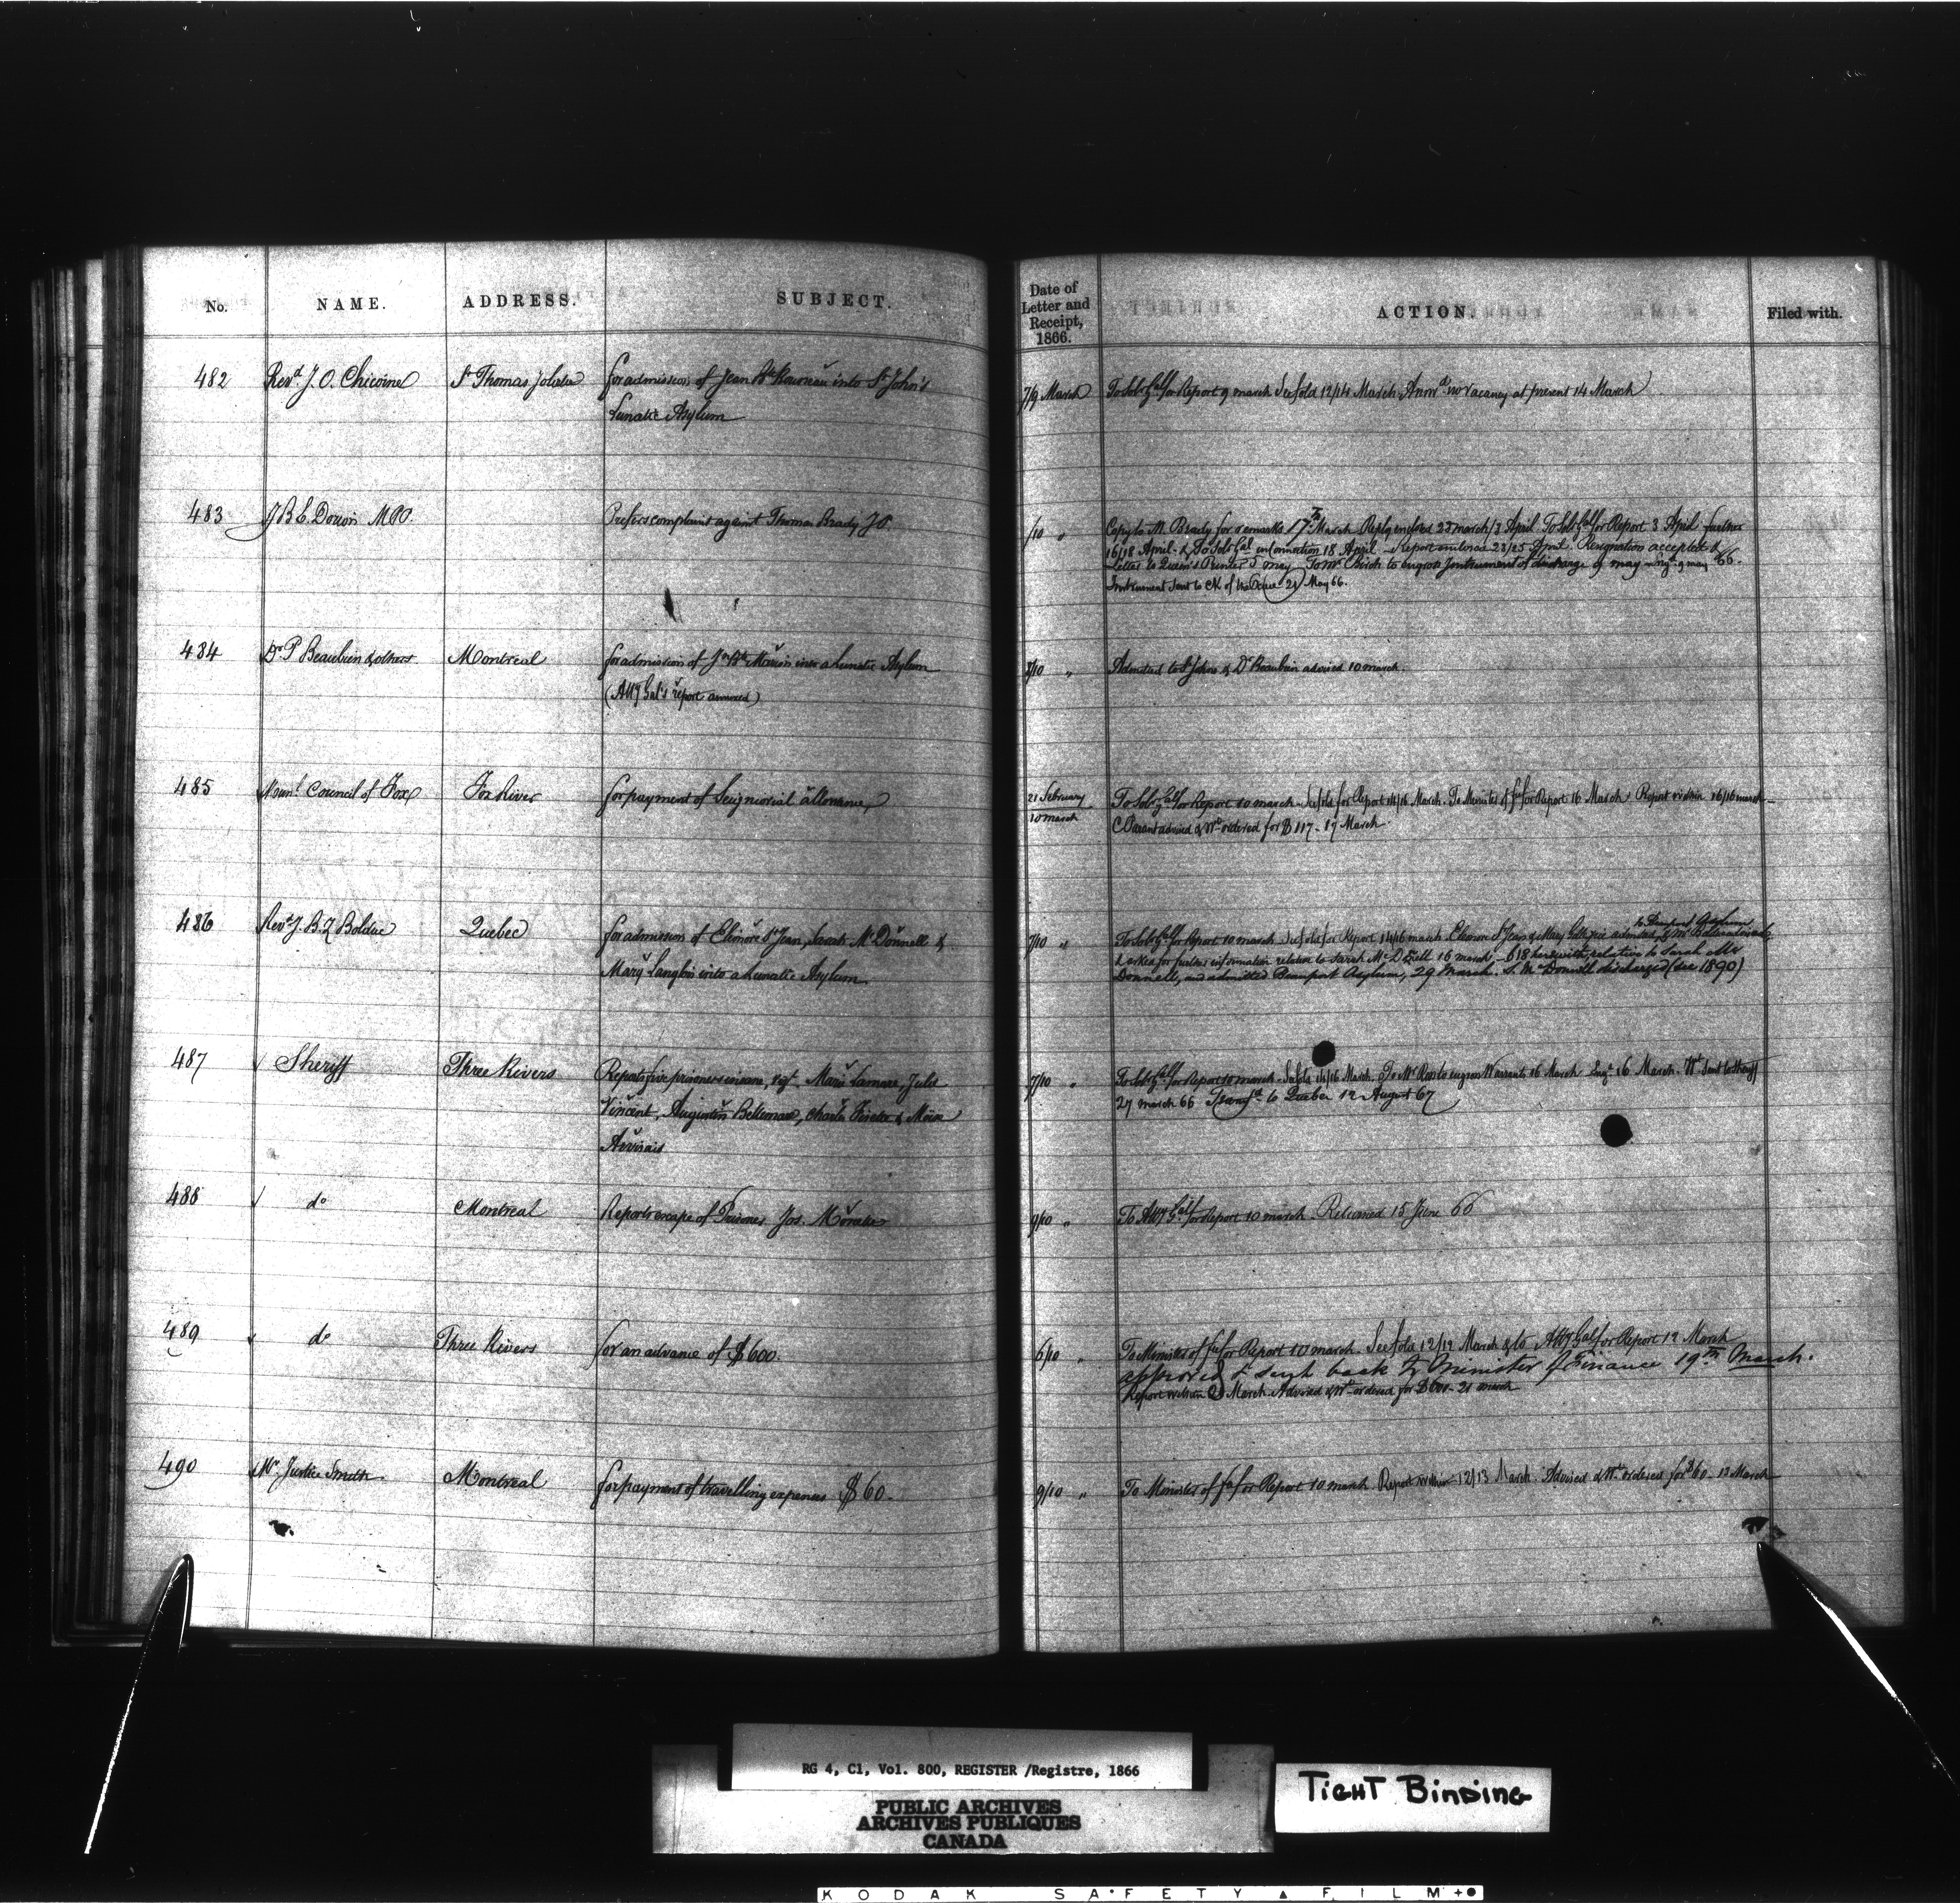 No. NAME. ADDRESS. SUBJECT.
Date of Letter and Receipt, 1866. ACTION. Filed with.
482 Revd. J. O. Chicoine St Thomas Joliette for admission of Jean Bte into St John's
Lunatic Asylum
7/9 March To Solr Genl for Report 9 march See fold 12/14 March Answd. no vacancy at present 14 March
483 J B E Dorion MPP. Prefers complaint against Thomas Brady JP.
/10 " Copy to Mr. Brady for remarks 17th March Reply enclosed 23 march/3 April To Solr Genl for Report 3 April further
16/18 April & To Solr Genl in Connection 18 April Report endorsed 23/25 April. Resignation accepted &
Letter to Queen's Printer 5 may To Mr Birch to engross Instrument of discharge 9 may Engd. 9 may 66.
Instrument sent to Clk of the Peace 21 May 66.
484 Dr P Beaubien & others Montreal for admission of Jn Bte Morin into a Lunatic Asylum
(Atty Genl's report annexed)
8/10 " Admitted to St Johns & Dr Beaubien advised 10 march.
485 Munl. Council of Fox Fox River for payment of Seigniorial allowance
21 February
10 march
To Solr Genl for Report 10 march See fold for Report 14/16 March. To Minister of fin for Report 16 March Report within 16/16 march
C Parent advised & Wt ordered for $117 - 17 March
486 Revd J. B. Z Bolduc Quebec for admission of Elenore St Jean, Sarah McDonnell &
Mary Langlois into a Lunatic Asylum
7/10 " To Solr Genl for Report 10 march See fold for Report 14/16 march Elenore St Jean & Mary admitted
to Beauport Asylum
& asked for further information relative to Sarah 16 march - 618 herewith, relative to Sarah Mc
Donnell, and admitted Beauport Asylum, 29 March. S. McDonnell discharged (see 1890)
487 Sheriff Three Rivers Reports five prisoners insane, vizt. Marie Lamare, Julie
Vincent, Augustin Bellemare, Charles & Moise
Arvisais
7/10 " To Solr Genl for Report 10 march. See fold 14/16 March. To Mr Ross to engross Warrants 16 March Engd 16 March. Wt sent to Sheriff
27 march 66 Transfd. to Quebec 12 August 67
488 do Montreal Reports escape of Prisoner Jos.
9/10 " To Atty Genl for Report 10 march. Returned 15 June 66
489 do Three Rivers for an advance of $600.
6/10 " To Minister of fin for Report 10 march. See fold 12/12 March & to Atty Genl for Report 12 March
approved & sent back to Minister of Finance 19th March.
Report within 20 March. Advised & Wt ordered for $600 - 21 march
490 Mr. Justice Smith Montreal for payment of travelling expenses $60.
9/10 " To Minister of fin for Report 10 march. Report within 12/13 March. Advised & Wt ordered for $60. 13 March
RG 4, C1, Vol. 800, REGISTER /Registre, 1866
PUBLIC ARCHIVES
ARCHIVES PUBLIQUES
CANADA
TIGHT BINDING
KODAK SAFETY FILM